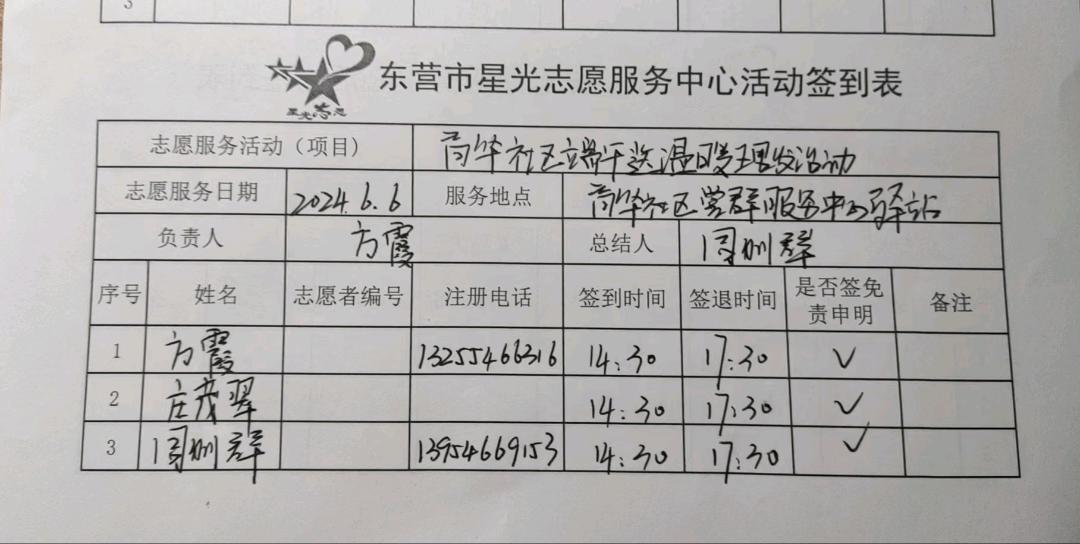 3
星光志愿
东营市星光志愿服务中心活动签到表
志愿服务活动（项目） 商华社区端午送温暖理发活动
志愿服务日期 2024.6.6 服务地点 商华社区党群服务中心驿站
负责人 方霞 总结人 周刚群
序号 姓名 志愿者编号 注册电话 签到时间 签退时间 是否签免责申明 备注
1 方霞 13255466316 14:30 17:30 ✓
2 庄茂翠 14:30 17:30 ✓
3 周刚群 13954669153 14:30 17:30 ✓